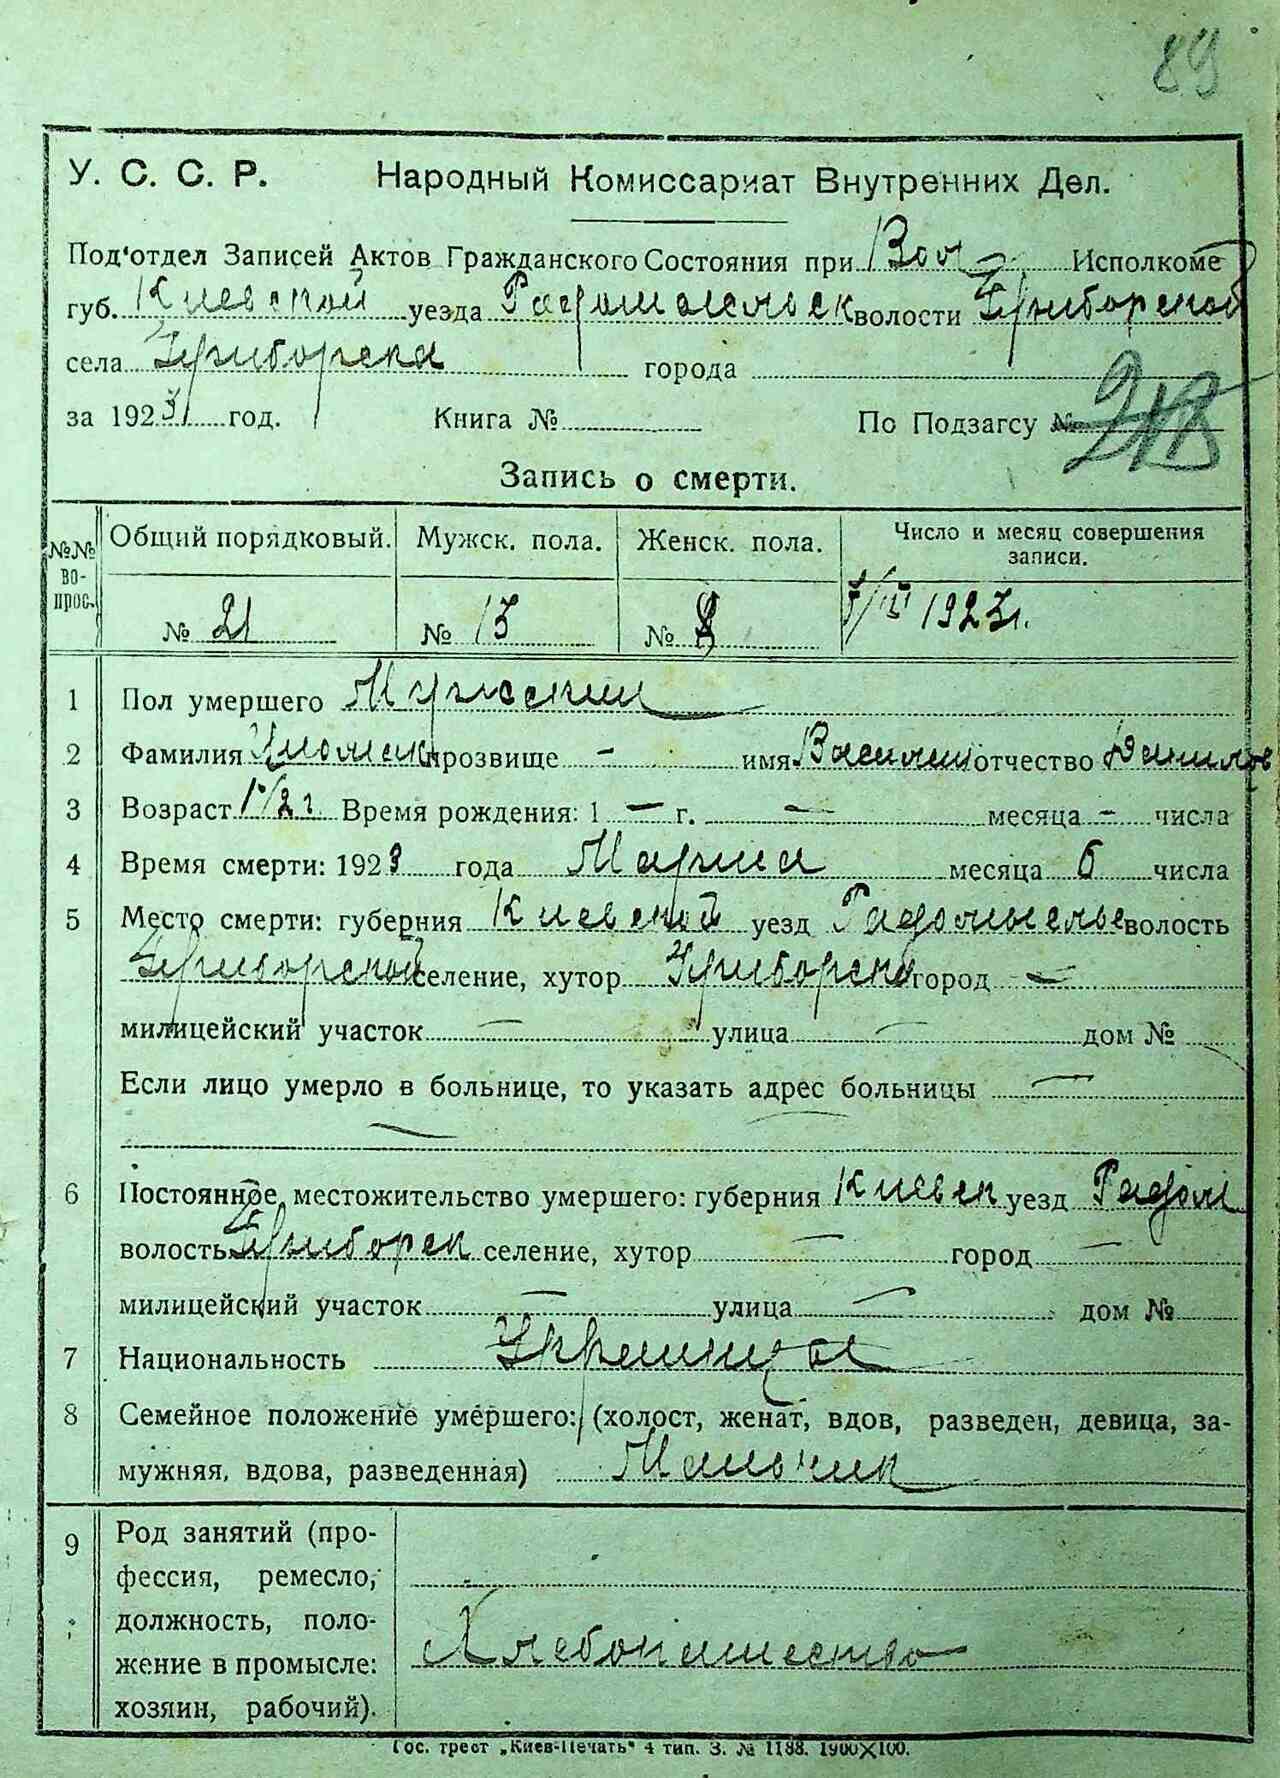 89
У. С. С. Р. Народный Комиссариат Внутренних Дел.
Под'отдел Записей Актов Гражданского Состояния при Вол Исполкоме
губ. Киевской уезда Радомысльск волости Приборской
села Приборска города
за 1923 год. Книга № По Подзагсу №
Запись о смерти.
№№ вопрос. Общий порядковый. Мужск. пола. Женск. пола. Число и месяц совершения записи.
№ 21 № 13 № 8 1923 г.
1 Пол умершего Мужский
2 Фамилия прозвище - имя Василий отчество Данилов
3 Возраст 1 1/2 г. Время рождения: 1 — г. — месяца - числа
4 Время смерти: 1923 года Марта месяца 6 числа
5 Место смерти: губерния Киевской уезд Радомысльс волость
Приборской селение, хутор Приборск город —
милицейский участок — улица — дом №
Если лицо умерло в больнице, то указать адрес больницы —
—
6 Постоянное местожительство умершего: губерния Киевск уезд Радом
волость Приборск селение, хутор — город —
милицейский участок — улица — дом №
7 Национальность Украинца
8 Семейное положение умершего: (холост, женат, вдов, разведен, девица, за-
мужняя, вдова, разведенная) Мальчик
9 Род занятий (про-
фессия, ремесло,
должность, поло-
жение в промысле: Хлебопашество
хозяин, рабочий).
Гос. трест „Киев-Печать" 4 тип. З. № 1188. 1900×100.